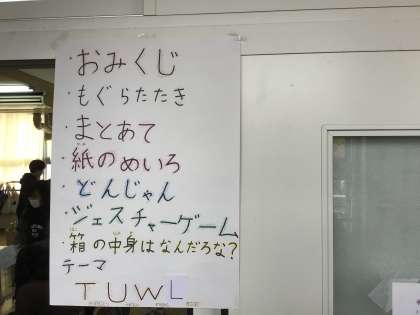 ・おみくじ
・もぐらたたき
・まとあて
・紙のめいろ
・どんじゃん
・ジェスチャーゲーム
・箱の中身はなんだろな?
テーマ
TUWL